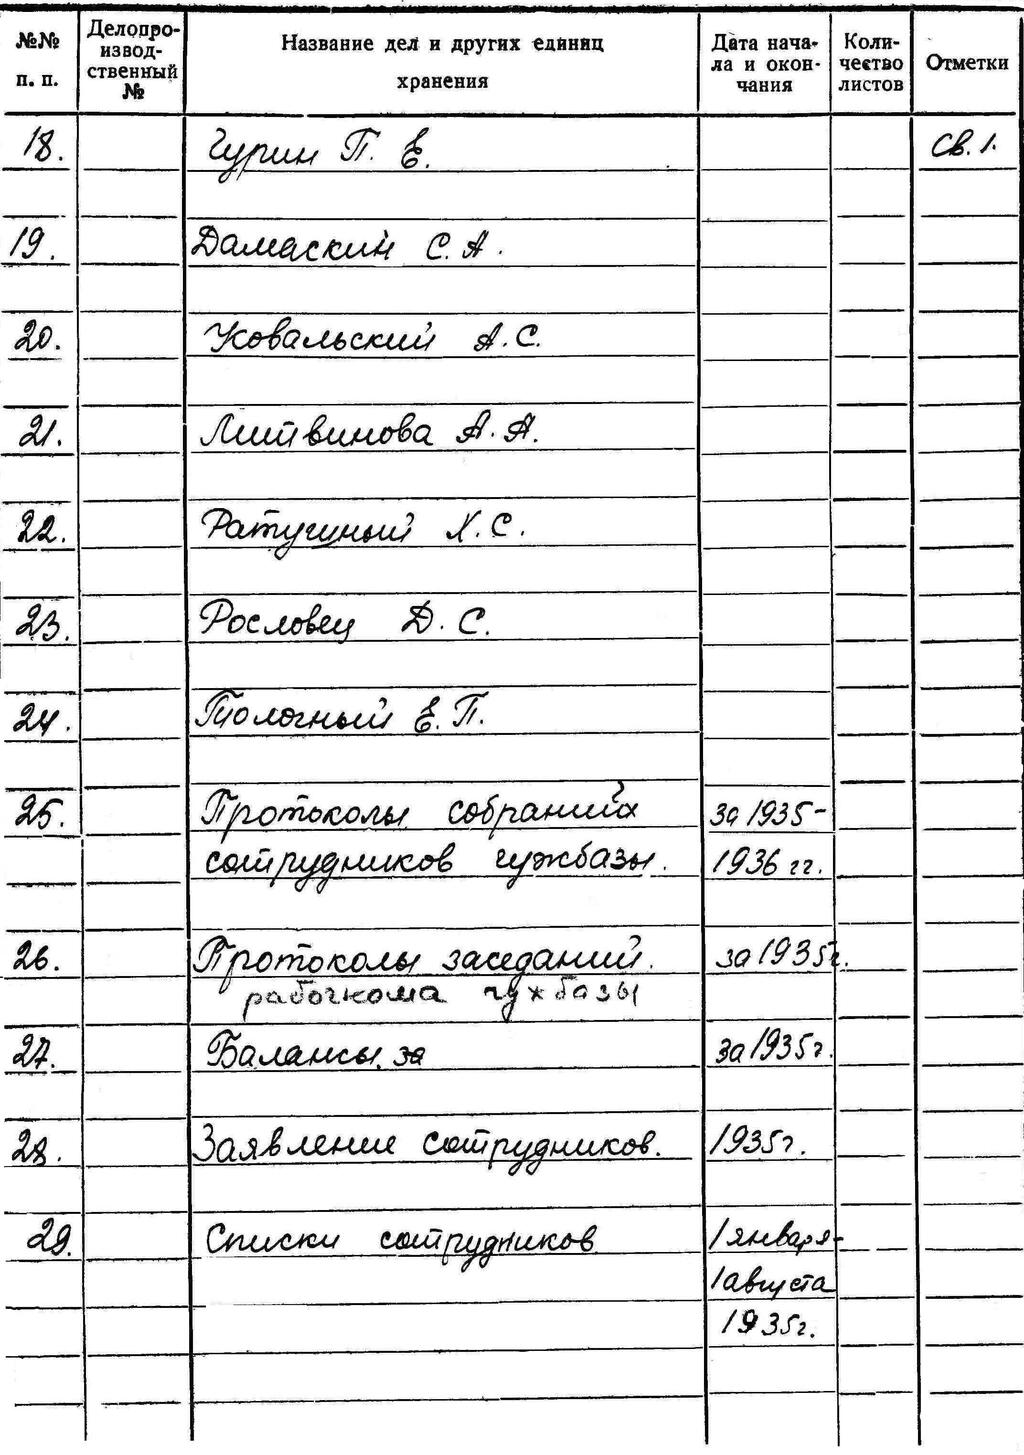 №№ п. п.
Делопро-
извод-
ственный
№
Название дел и других единиц
хранения
Дата нача-
ла и окон-
чания
Коли-
чество
листов
Отметки
18. Гурин П. Е. св. 1.
19. Дамаскин С. А.
20. Ковальский А. С.
21. Литвинова А. А.
22. Ратушный Х. С.
23. Рословец Д. С.
24. Толочный Е. П.
25. Протоколы собраний за 1935-
сотрудников гужбазы. 1936 гг.
26. Протоколы заседаний. за 1935г.
рабочкома гужбазы
27. Балансы за за 1935г.
28. Заявление сотрудников. 1935г.
29. Списки сотрудников 1 января-
1 августа
1935г.